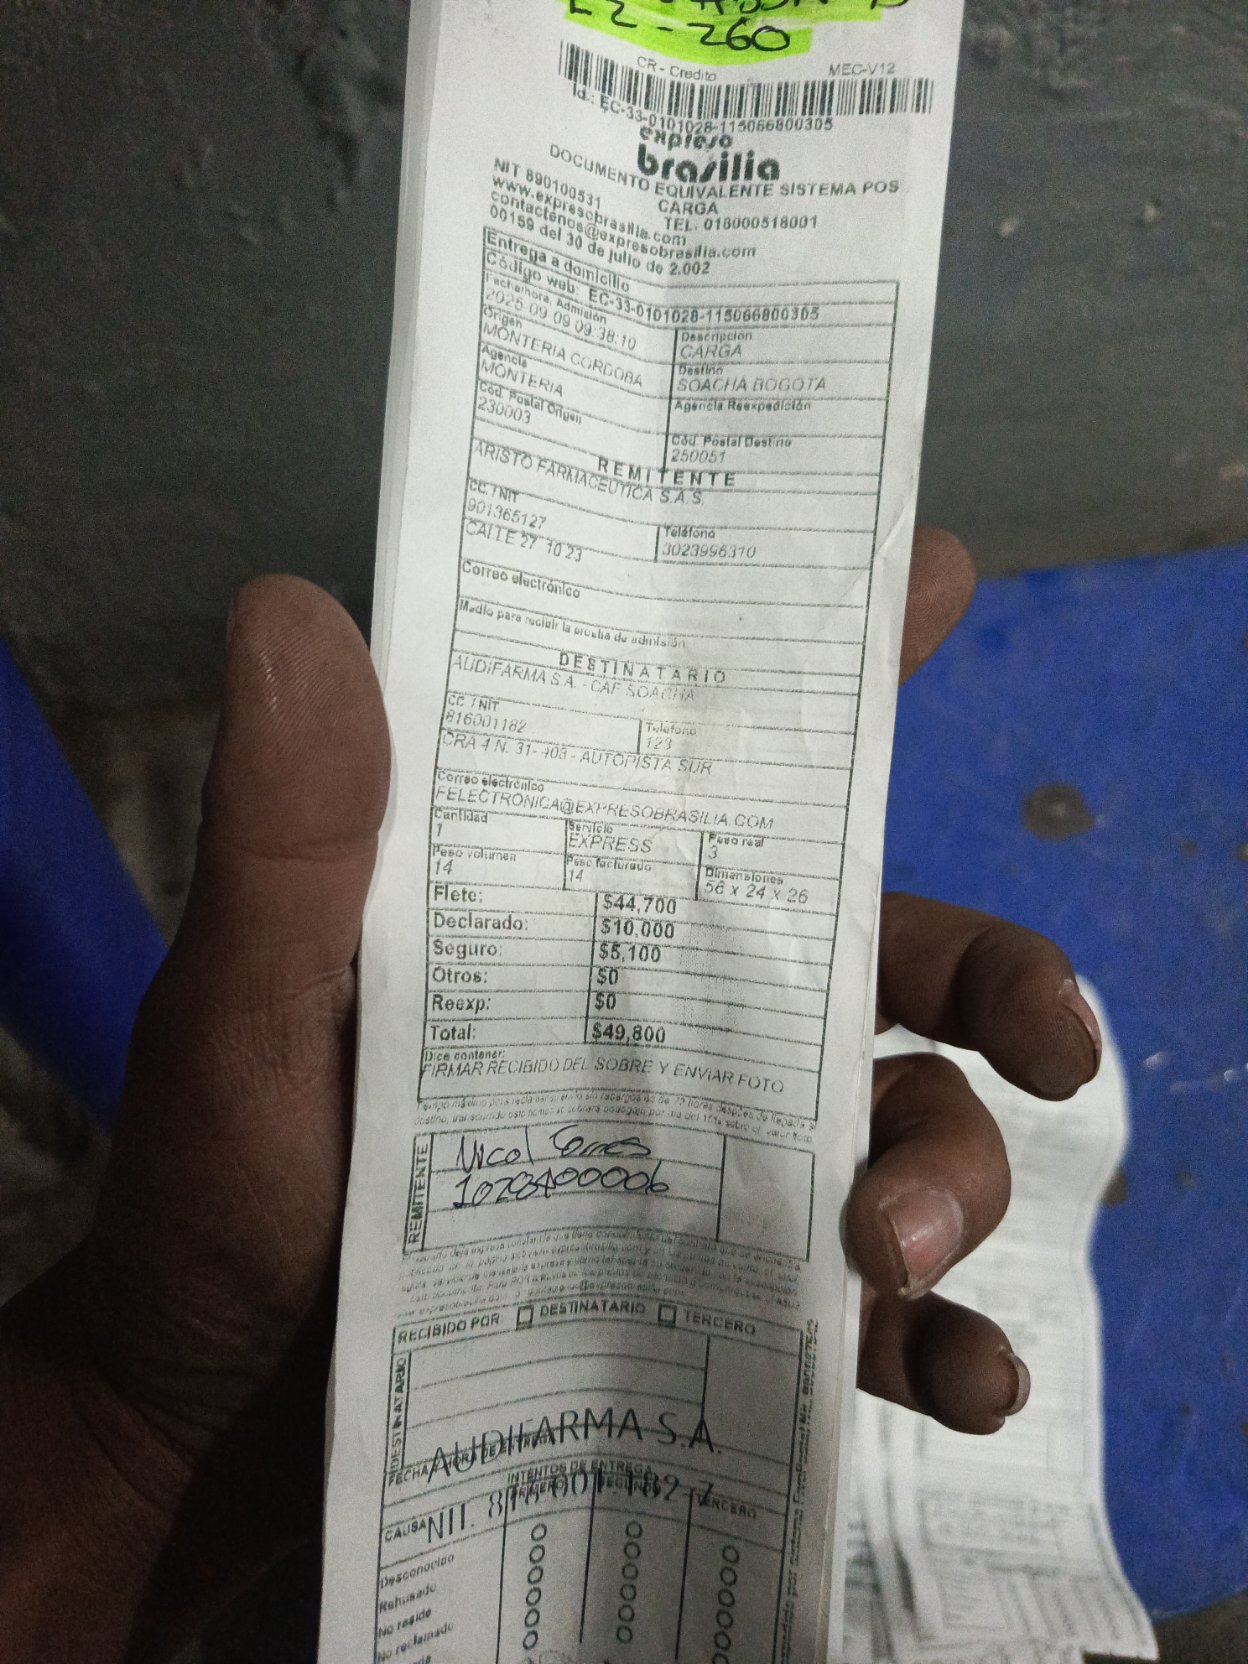 EZ-260
CR - Credito MEC-V12
Id.: EC-33-0101028-115066800305
expreso
brasilia
DOCUMENTO EQUIVALENTE SISTEMA POS
CARGA
NIT 890100531
TEL: 018000518001
www.expresobrasilia.com
contactenos@expresobrasilia.com
00159 del 30 de julio de 2.002
Entrega a domicilio
Código web: EC-33-0101028-115066800305
Fecha/hora, Admisión
2025-09-09 09:38:10
Descripción
CARGA
Origen
MONTERIA CORDOBA
Destino
SOACHA BOGOTA
Agencia
MONTERIA
Agencia Reexpedición
Cód. Postal Origen
230003
Cód. Postal Destino
250051
REMITENTE
ARISTO FARMACEUTICA S.A.S.
CC. / NIT
901365127
Teléfono
3023996310
CALLE 27 10 23
Correo electrónico
Medio para recibir la prueba de admisión
DESTINATARIO
AUDIFARMA S.A. - CAF SOACHA
CC / NIT
816001182
Teléfono
123
CRA 4 N. 31- 408 - AUTOPISTA SUR
Correo electrónico
FELECTRONICA@EXPRESOBRASILIA.COM
Cantidad
1
Servicio
EXPRESS
Peso real
3
Peso volumen
14
Peso facturado
14
Dimensiones
56 x 24 x 26
Flete: $44,700
Declarado: $10,000
Seguro: $5,100
Otros: $0
Reexp: $0
Total: $49,800
Dice contener:
FIRMAR RECIBIDO DEL SOBRE Y ENVIAR FOTO
REMITENTE
Nicol Torres
RECIBIDO POR: DESTINATARIO TERCERO
DESTINATARIO
AUDIFARMA S.A.
INTENTOS DE ENTREGA
CAUSA PRIMERO SEGUNDO TERCERO
NIT. 816 001 182-7
Desconocido
Rehusado
No reside
No reclamado